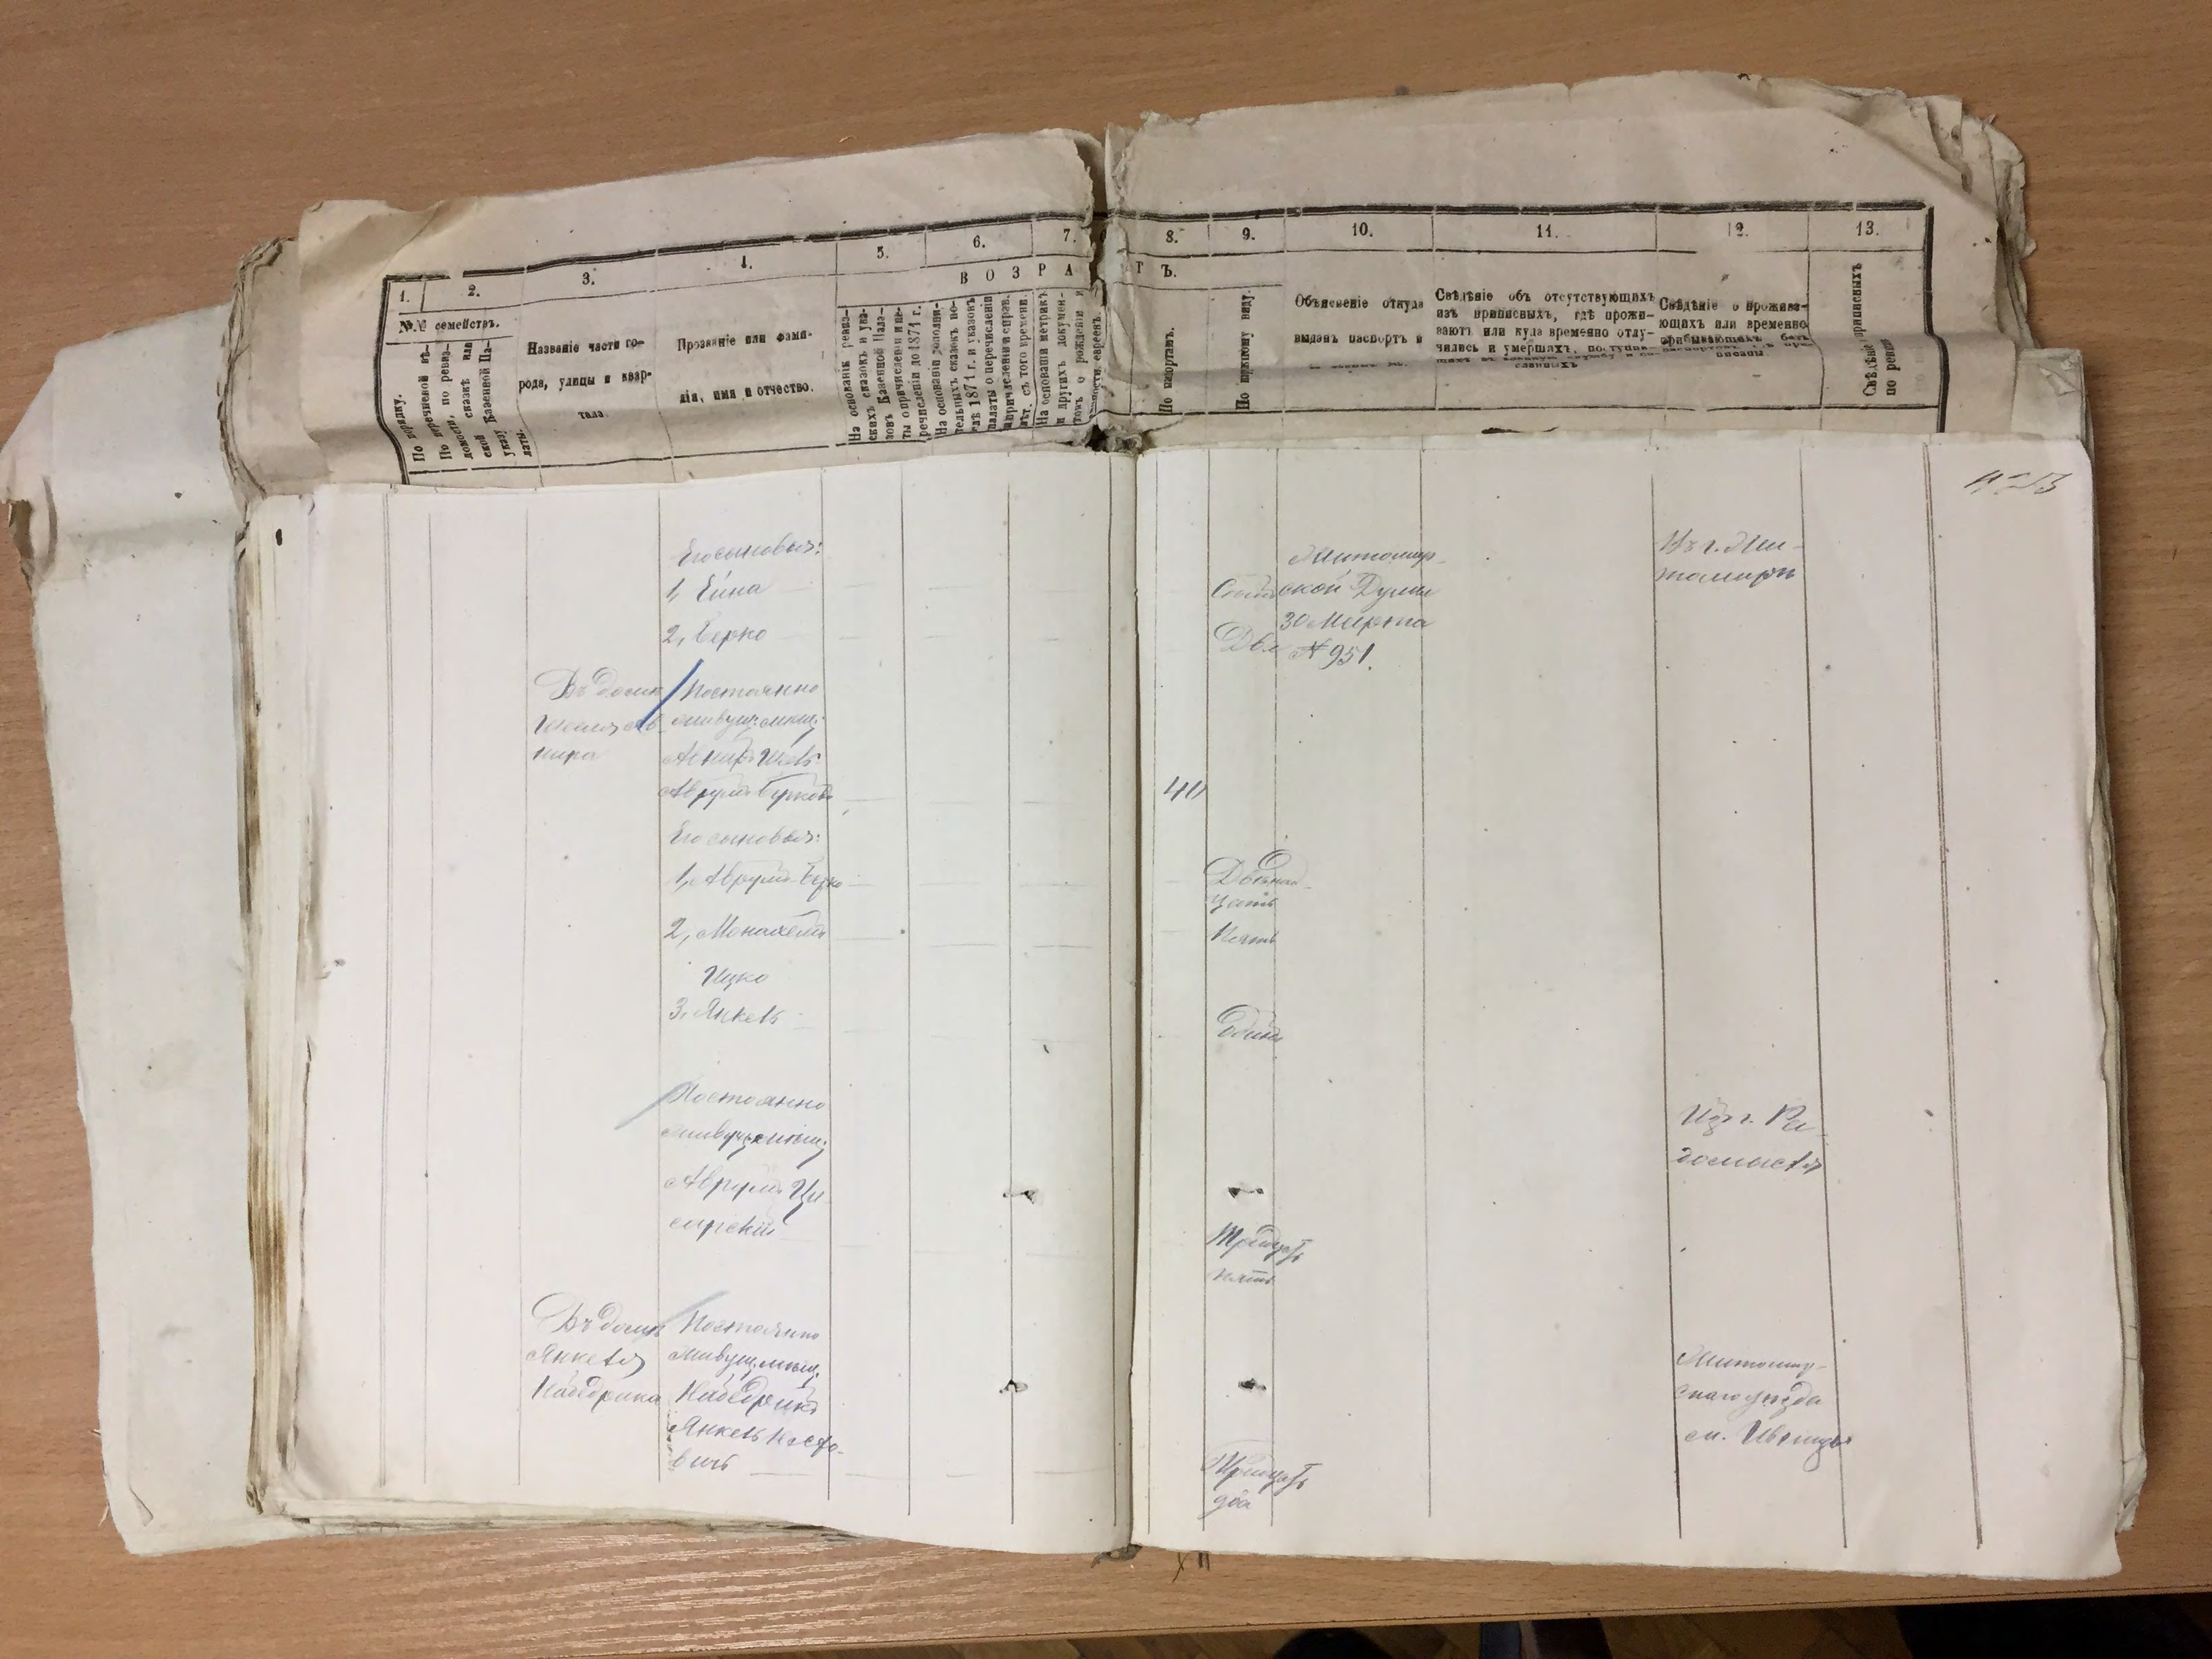 1.
2.
3.
4.
5.
6.
7.
8.
9.
10.
11.
12.
13.
ВОЗРА
ТЪ.
№№ семействъ.
По порядку.
По перечневой вѣ-
домости, по ревиз-
ской сказкѣ или
указу Казенной Па-
латы.
Названіе части го-
рода, улицы и квар-
тала.
Прозваніе или фами-
лія, имя и отчество.
На основаніи ревиз-
скихъ сказокъ и ука-
зовъ Казенной Пала-
ты о причисленіи и пе-
речисленіи до 1871 г.
На основаніи дополни-
тельныхъ сказокъ по-
слѣ 1871 г. и указовъ
палаты о перечисленіи
и причисленіи и справ.
лѣт. съ того времени.
На основаніи метрикъ
и другихъ докумен-
товъ о рожденіи и
евреевъ
По паспортамъ.
По наружному виду.
Объясненіе откуда
выданъ паспортъ и
Свѣдѣніе объ отсутствующихъ
изъ приписныхъ, гдѣ прожи-
ваютъ или куда временно отлу-
чились и умершихъ, поступив-
Свѣдѣніе о прожива-
ющихъ или временно
пребывающихъ безъ
писаны
Свѣдѣніе приписныхъ
по ревиз
Его сыновья:
1, Ейна
2, Берко
Въ домѣ
нира
Постоянно
живущ. мѣщ.
Аврумъ Берков
Его сыновья:
1, Аврумъ-Берко
2, Монахемъ
Ицко
3, Янкель
Постоянно
живущ. мѣщ.
Аврумъ Ци
Въ домѣ
Янкеля
Постоянно
живущ. мѣщ.
Янкель Иосфо-
вичъ
Житомир-
ской Думы
30 Марта
№ 951.
Два
40
Двѣнад-
цать
Пять
Одинъ
Тридцать
пять
Тридцать
два
Въ г. Жи-
томирѣ
Изъ г. Ра-
домысля
Житомир-
скаго уѣзда
м. Ивницы